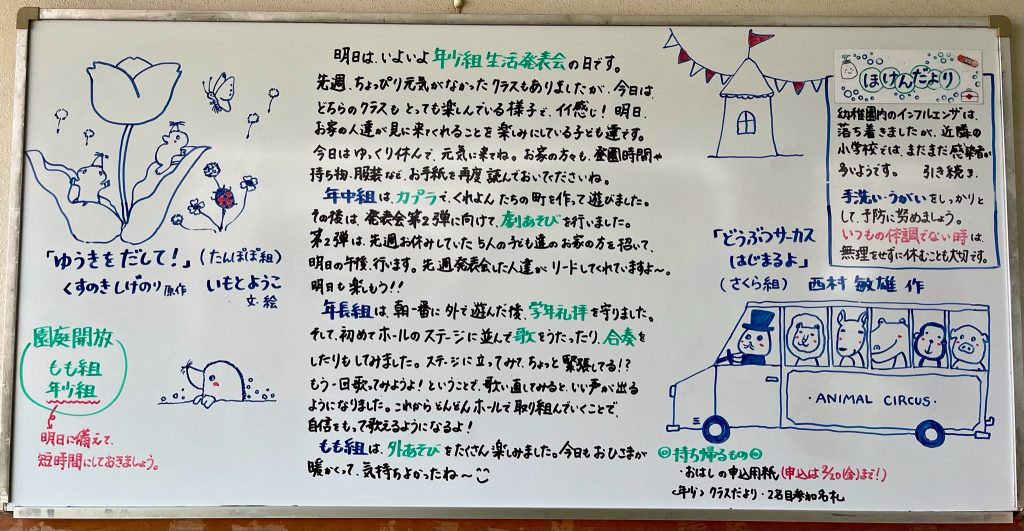 明日は、いよいよ年少組生活発表会の日です。
先週、ちょっぴり元気がなかったクラスもありましたが、今日は、
どちらのクラスもとっても楽しんでいる様子で、イイ感じ！明日、
お家の人達が見に来てくれることを楽しみにしている子ども達です。
今日はゆっくり休んで、元気に来てね。お家の方々も、登園時間や
持ち物、服装など、お手紙を再度読んでおいてくださいね。
年中組は、カプラで、くれよんたちの町を作って遊びました。
その後は、発表会第2弾に向けて、劇あそびを行いました。
第2弾は、先週お休みしていた5人の子ども達のお家の方を招いて、
明日の午後、行います。先週発表会した人達がリードしてくれていますよ〜。
明日も楽しもう！！
年長組は、朝一番に外で遊んだ後、学年礼拝を守りました。
そして、初めてホールのステージに並んで歌をうたったり、合奏を
したりもしてみました。ステージに立ってみて、ちょっと緊張してる！？
もう一回歌ってみよう！ということで、歌い直してみると、いい声が出る
ようになりました。これからどんどんホールで取り組んでいくことで、
自信をもって歌えるようになるよ！
もも組は、外あそびをたくさん楽しみました。今日もおひさまが
暖かくって、気持ちよかったね〜
「ゆうきをだして！」（たんぽぽ組）
くすのきしげのり 原作 いもとようこ
文・絵
園庭開放
もも組
年少組
明日に備えて、
短時間にしておきましょう。
ほけんだより
幼稚園内のインフルエンザは、
落ち着きましたが、近隣の
小学校では、まだまだ感染者が
多いようです。 引き続き、
手洗い・うがいをしっかりと
して、予防に努めましょう。
いつもの体調でない時は、
無理をせずに休むことも大切です。
「どうぶつサーカス
はじまるよ」
（さくら組） 西村 敏雄 作
・ANIMAL CIRCUS・
持ち帰るもの
・おはしの申込用紙（申込は2/20(金)まで！）
〈年少〉クラスだより・2名目参加名札